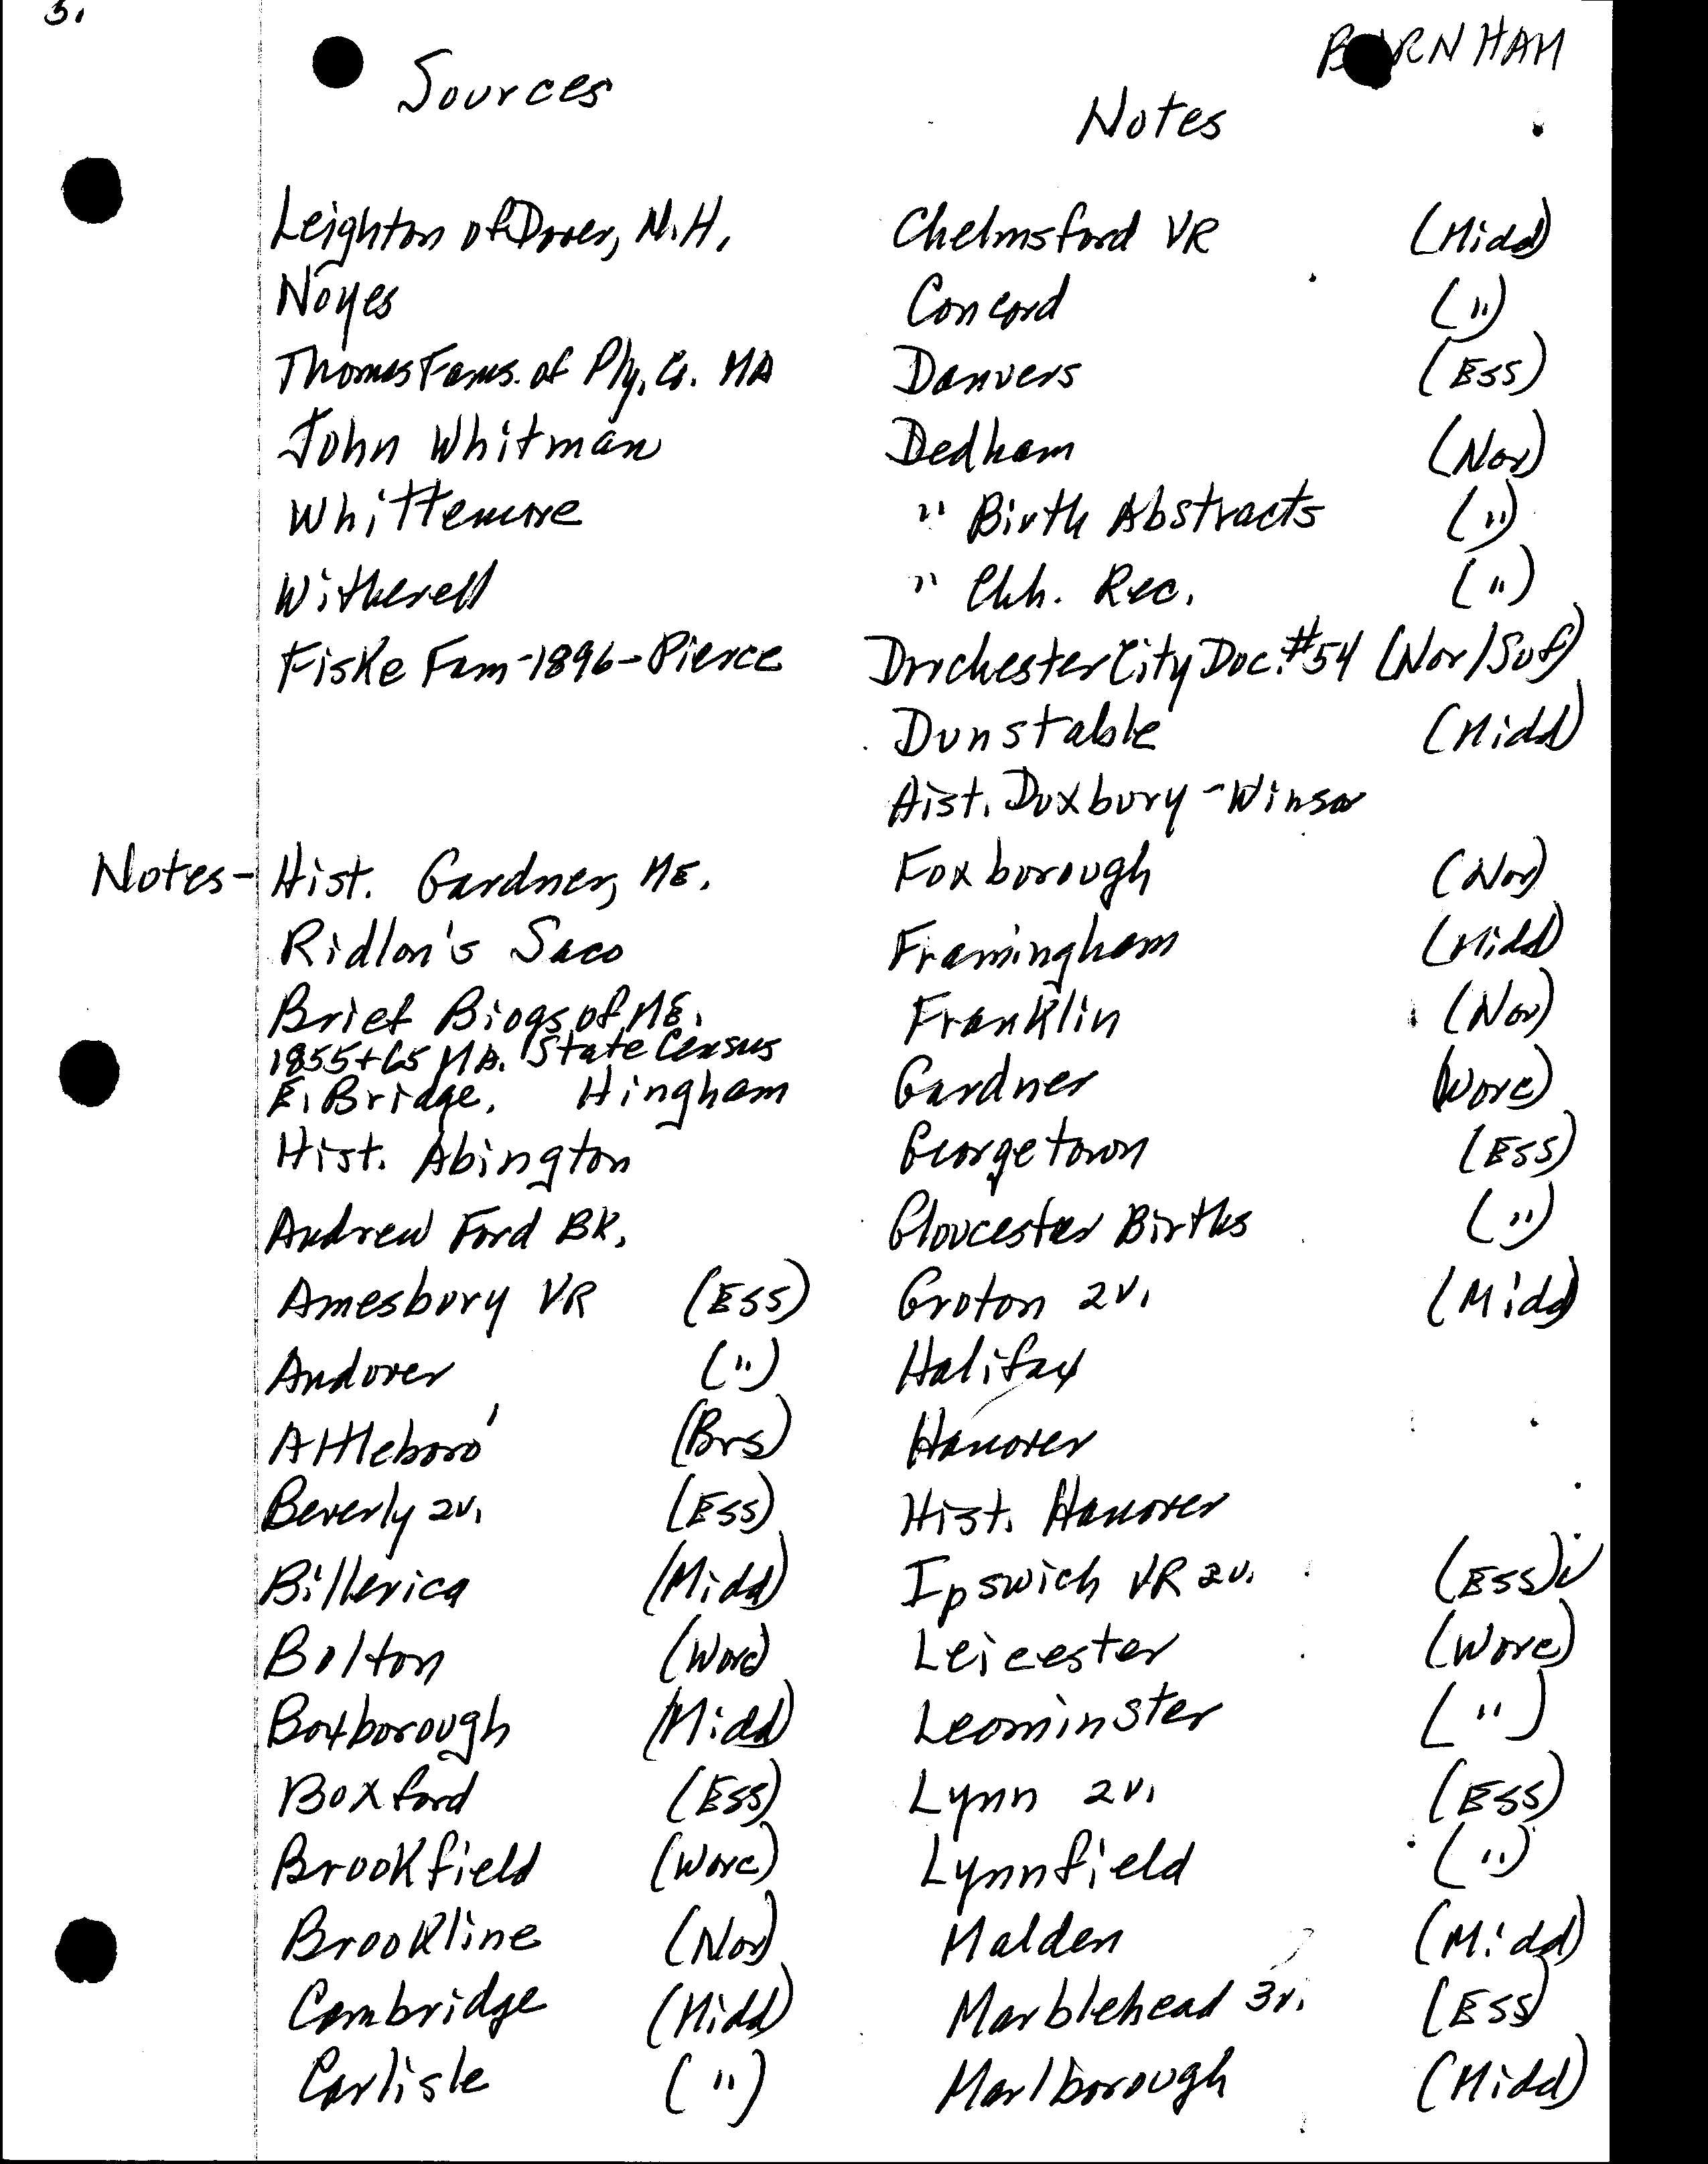 3.
BURNHAM
Sources
Notes
Leighton of Dover, N.H.
Noyes
Thomas Fams. of Ply. Co. MA
John Whitman
Whittemore
Witherell
Fiske Fam - 1896 - Pierce
Notes - Hist. Gardner, ME.
Ridlon's Saco
Brief Biogs of ME.
1855 + 65 MA. State Census
E. Bridge. Hingham
Hist. Abington
Andrew Ford BK.
Amesbury VR (Ess)
Andover (")
Attleboro' (Brs)
Beverly 2v. (Ess)
Billerica (Midd)
Bolton (Worc)
Boxborough (Midd)
Boxford (Ess)
Brookfield (Worc)
Brookline (Nor)
Cambridge (Midd)
Carlisle (")
Chelmsford VR (Midd)
Concord (")
Danvers (Ess)
Dedham (Nor)
" Birth Abstracts (")
" Chh. Rec. (")
Dorchester City Doc. #54 (Nor/Suf)
Dunstable (Midd)
Hist. Duxbury - Winsor
Foxborough (Nor)
Framingham (Midd)
Franklin (Nor)
Gardner (Worc)
Georgetown (Ess)
Gloucester Births (")
Groton 2v. (Midd)
Halifax
Hanover
Hist. Hanover
Ipswich VR 2v. (Ess) ✓
Leicester (Worc)
Leominster (")
Lynn 2v. (Ess)
Lynnfield (")
Malden (Midd)
Marblehead 3v. (Ess)
Marlborough (Midd)